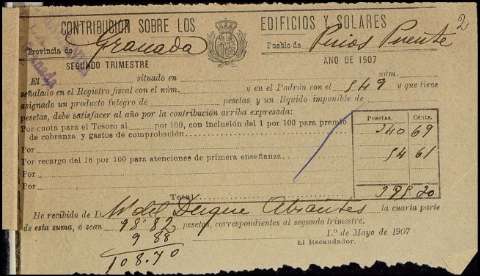 CONTRIBUCIÓN SOBRE LOS EDIFICIOS Y SOLARES
2
Provincia de Granada Pueblo de Pinos Puente
SEGUNDO TRIMESTRE AÑO DE 1907
El situado en núm.
señalado en el Registro fiscal con el núm. y en el Padrón con el 549 y que tiene
asignado un producto íntegro de pesetas y un líquido imponible de
pesetas, debe satisfacer al año por la contribución arriba expresada:
Pesetas. Cents.
Por cuota para el Tesoro al por 100, con inclusión del 1 por 100 para premio
de cobranza y gastos de comprobación. 340 69
Por
Por recargo del 16 por 100 para atenciones de primera enseñanza. 54 61
Por
Por
Total 395 30
He recibido de D. M del Duque Abrantes la cuarta parte
de esta suma, ó sean 98'82 pesetas, correspondientes al segundo trimestre.
9 88
108.70
1.º de Mayo de 1907
El Recaudador,